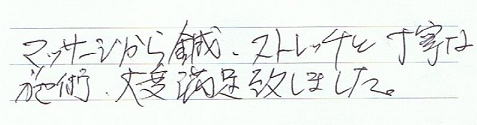 マッサージから鍼、ストレッチと丁寧な
施術、大変満足致しました。